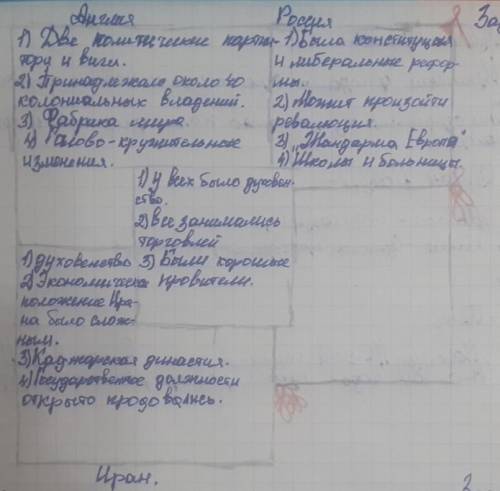 Англия
1) Две политические партии-
тори и виги.
2) Принадлежало около 40
колониальных владений.
3) Фабрика мира.
изменения.
Россия
1) Была конституция
и либеральные рефор-
мы.
2) Может произойти
революция.
3) "Жандарма Европы"
4) Школы и больницы.
1) У всех было духовен-
ство.
2) все занимались
торговлей
3) Были хорошие
правители.
1) духовенство
2) Экономическое
положение Ира-
на было слож-
ным.
3) Каджарская династия.
4) Государственное должности
открыто продовались.
Иран.
Зад
2